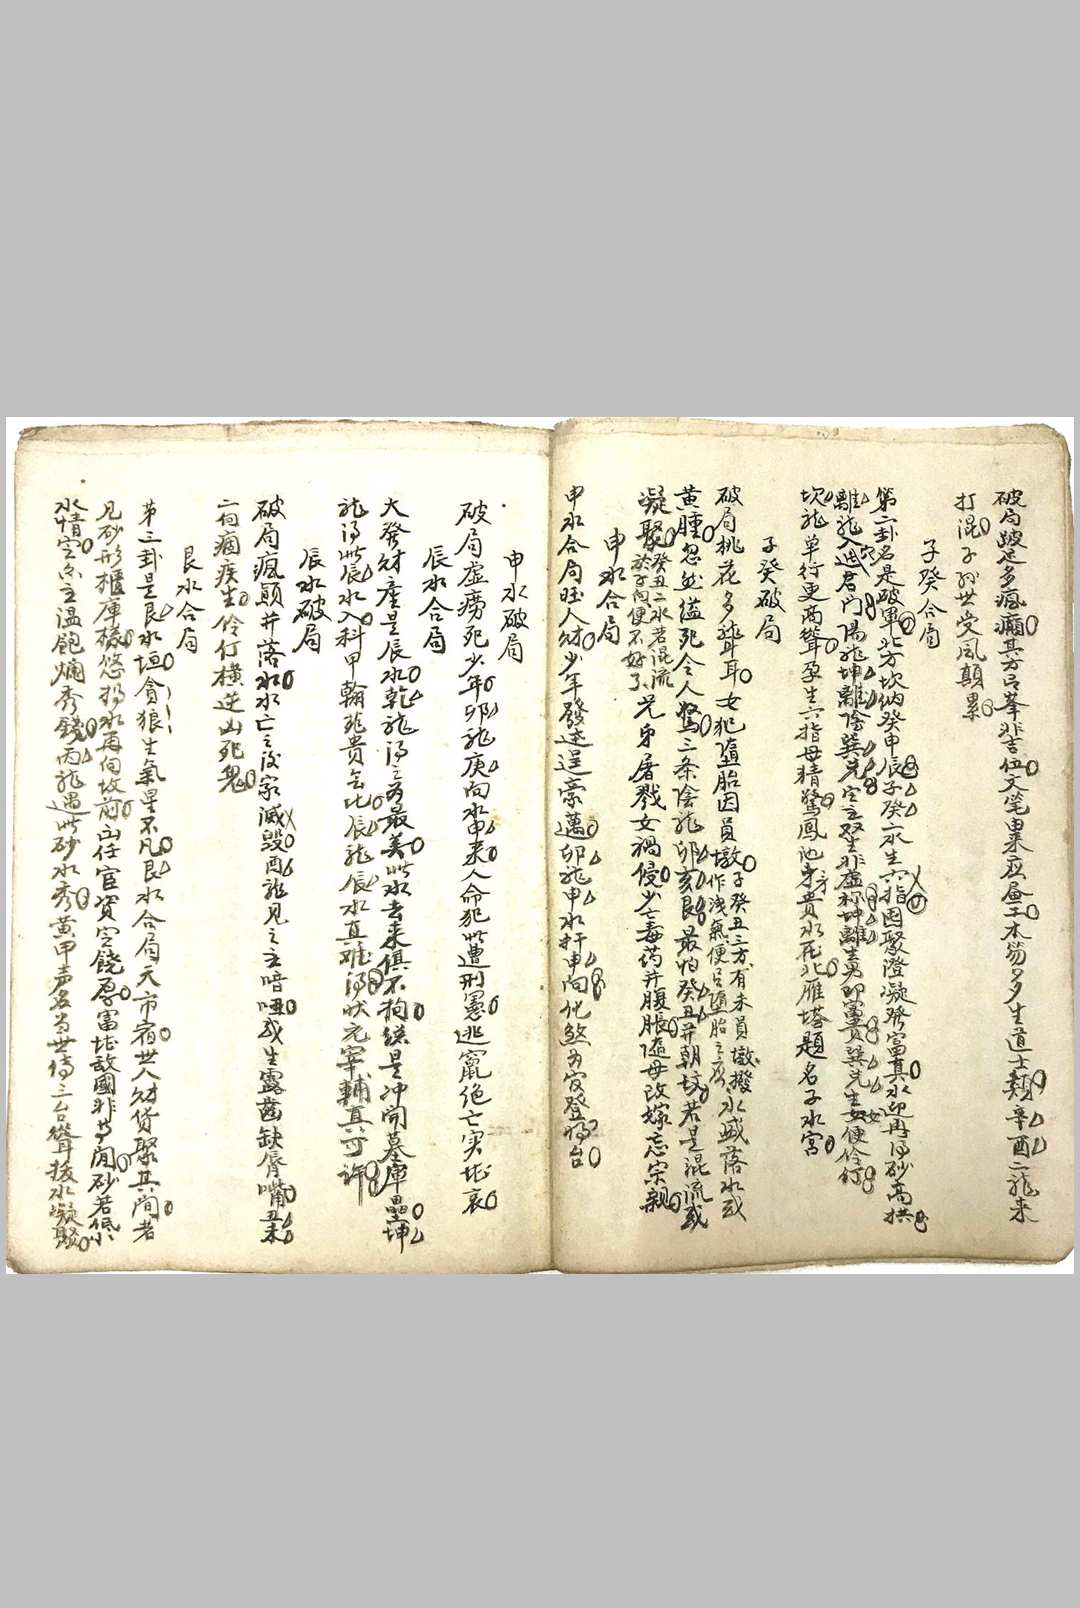 破局跛足多瘋癱其方呂峯非吉位文笔畢应屋工木笏多多生道士類辛酉二龍来
打混子孙世受風顛累
子癸合局
第二卦名是破軍北方坎纳癸申辰子癸二水生六指囷聚澄凝發富真水迎再得砂高拱
離龍入迯穴君門陽龍坤離陰巽先定主双生非虚称坤離生男卯霣巽先生女便伶仃
坎龍单行更高聳孕生六指母精驚鳳池身貴水花北雁塔題名子水宮
子癸破局
破局桃花多聋耳女犯墮胎因員墩子癸丑三方有未員墩撥作洩氣便呂墮胎之应水盛落水或
黄腫忽然縊死令人驚三条陰龍卯亥艮最怕癸丑并朝坟若是混流或
凝聚癸丑二水若混流於子向便不好了兄弟屠戮女禍侵少亡毒药并腹脹随母改嫁忘宗親
申水合局
申水合局旺人财少年發達逞豪邁卯龍申水扦申向化煞为官登將台
申水破局
破局虚癆死少年卯龍庚向水申来人命犯此遭刑憲逃竄絶亡实堪哀
辰水合局
大發财産是辰水乾龍得之为最美此水去来俱不拘総是冲開墓庫壘坤
龍得此辰水入科甲翰苑貴無比辰龍辰水真难得状元宰輔真可許
辰水破局
破局瘋顛并落水水亡之後家滅毁酉龍見之主喑啞或生露齒缺脣嘴丑未
二向痼疾生伶仃橫逆凶死鬼
艮水合局
第三卦是艮水垣貪狼生氣星不凡艮水合局天市宿世人财貨聚其间者
凡砂形櫃庫樣悠揚水再向坟前山任官資定饒厚富堪敌國非等閒砂若低小
水情定亦主温飽爛秀錢丙龍遇此砂水秀黄甲声名为世傳三台聳拔水凝聚